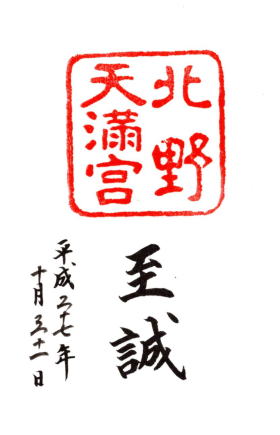 北野
天満宮
至誠
平成二十七年
十月三十一日